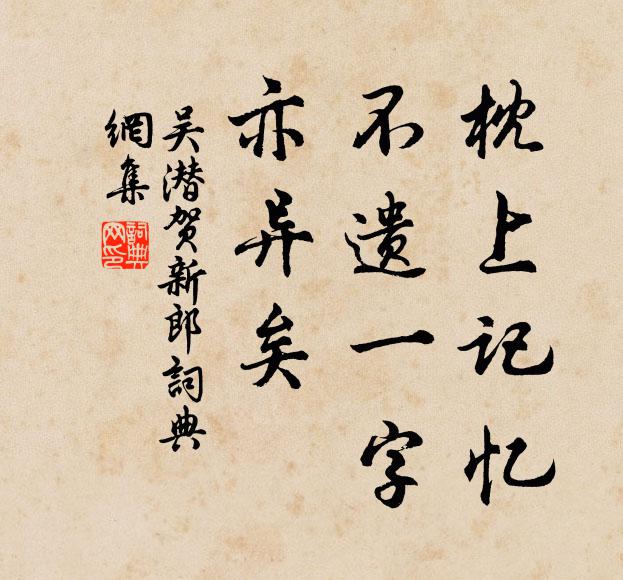 枕上记忆
不遗一字
亦异矣
吴潜贺新郎詞典
網集
詞典
网印